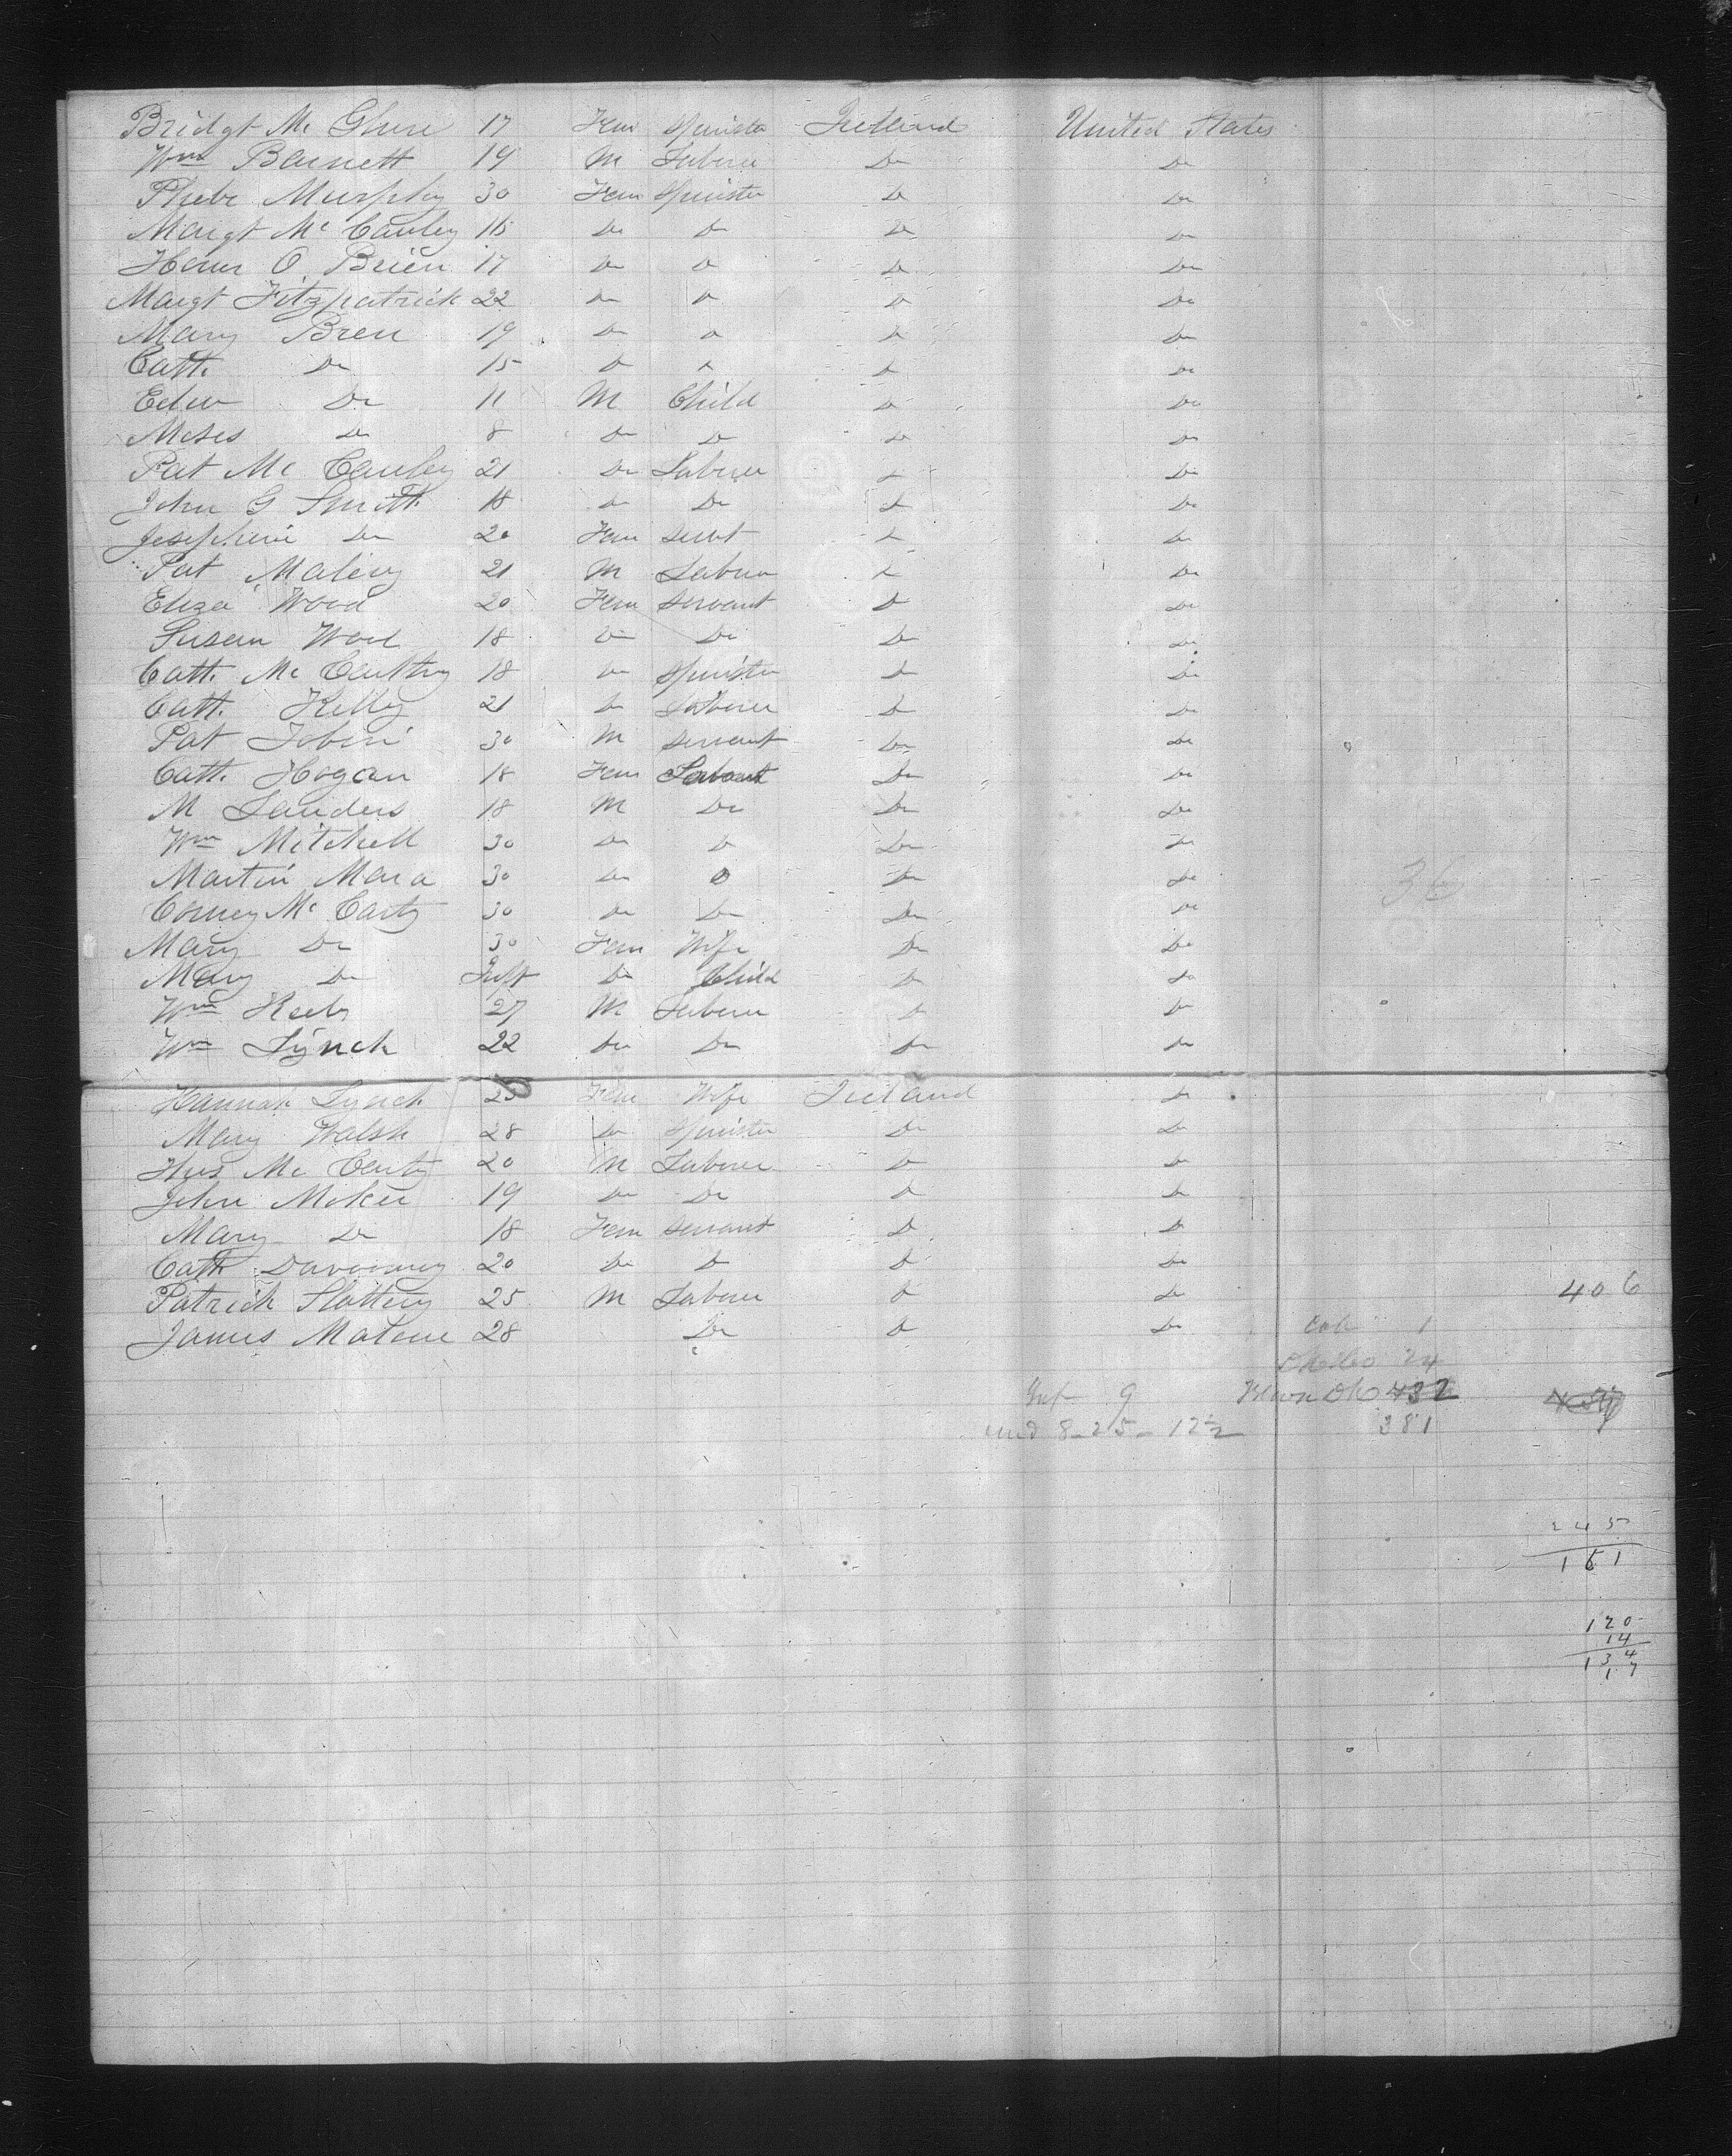 Bridgt Mc Glune 17 Fem Spinster Ireland United States
Wm Barnett 19 M Laborer Do Do
Phebe Murphy 30 Fem Spinster Do Do
Margt Mc Cauley 16 Do Do Do Do
O Brien 17 Do Do Do Do
Margt Fitzpatrick 22 Do Do Do Do
Mary Bren 19 Do Do Do Do
Cath. Do 15 Do Do Do Do
Edw Do 11 M Child Do Do
Moses Do 8 Do Do Do Do
Pat Mc Cauley 21 Do Laborer Do Do
John G Smith 18 Do Do Do Do
Josephine Do 20 Fem Servt Do Do
Pat Malery 21 M Laborer Do Do
Eliza Wood 20 Fem Servant Do Do
Susan Wood 18 Do Do Do Do
Cath. Mc Carthy 18 Do Spinster Do Do
Cath. Kelly 21 Do Laborer Do Do
Pat Tobin 30 M Servant Do Do
Cath. Hogan 18 Fem Do Do
M Landers 18 M Do Do Do
Wm Mitchell 30 Do Do Do Do
Martin Mara 30 Do Do Do Do
36
Corney Mc Carty 30 Do Do Do Do
Mary Do 30 Fem Wife Do Do
Mary Do Inft Do Child Do Do
Wm 27 M Laborer Do Do
Wm Lynch 22 Do Do Do Do
Hannah Lynch 25 Fem Wife Ireland Do
Mary Walsh 28 Do Spinster Do Do
Mc Carty 20 M Laborer Do Do
John McKee 19 Do Do Do Do
Mary Do 18 Fem Servant Do Do
Cath 20 Do Do Do Do
Patrick Slattery 25 M Laborer Do Do 406
James Malone 28 Do Do Do Cab 1
24
Inf 9 432
und 8-25-12½ 381
245
161
120
14
134
17